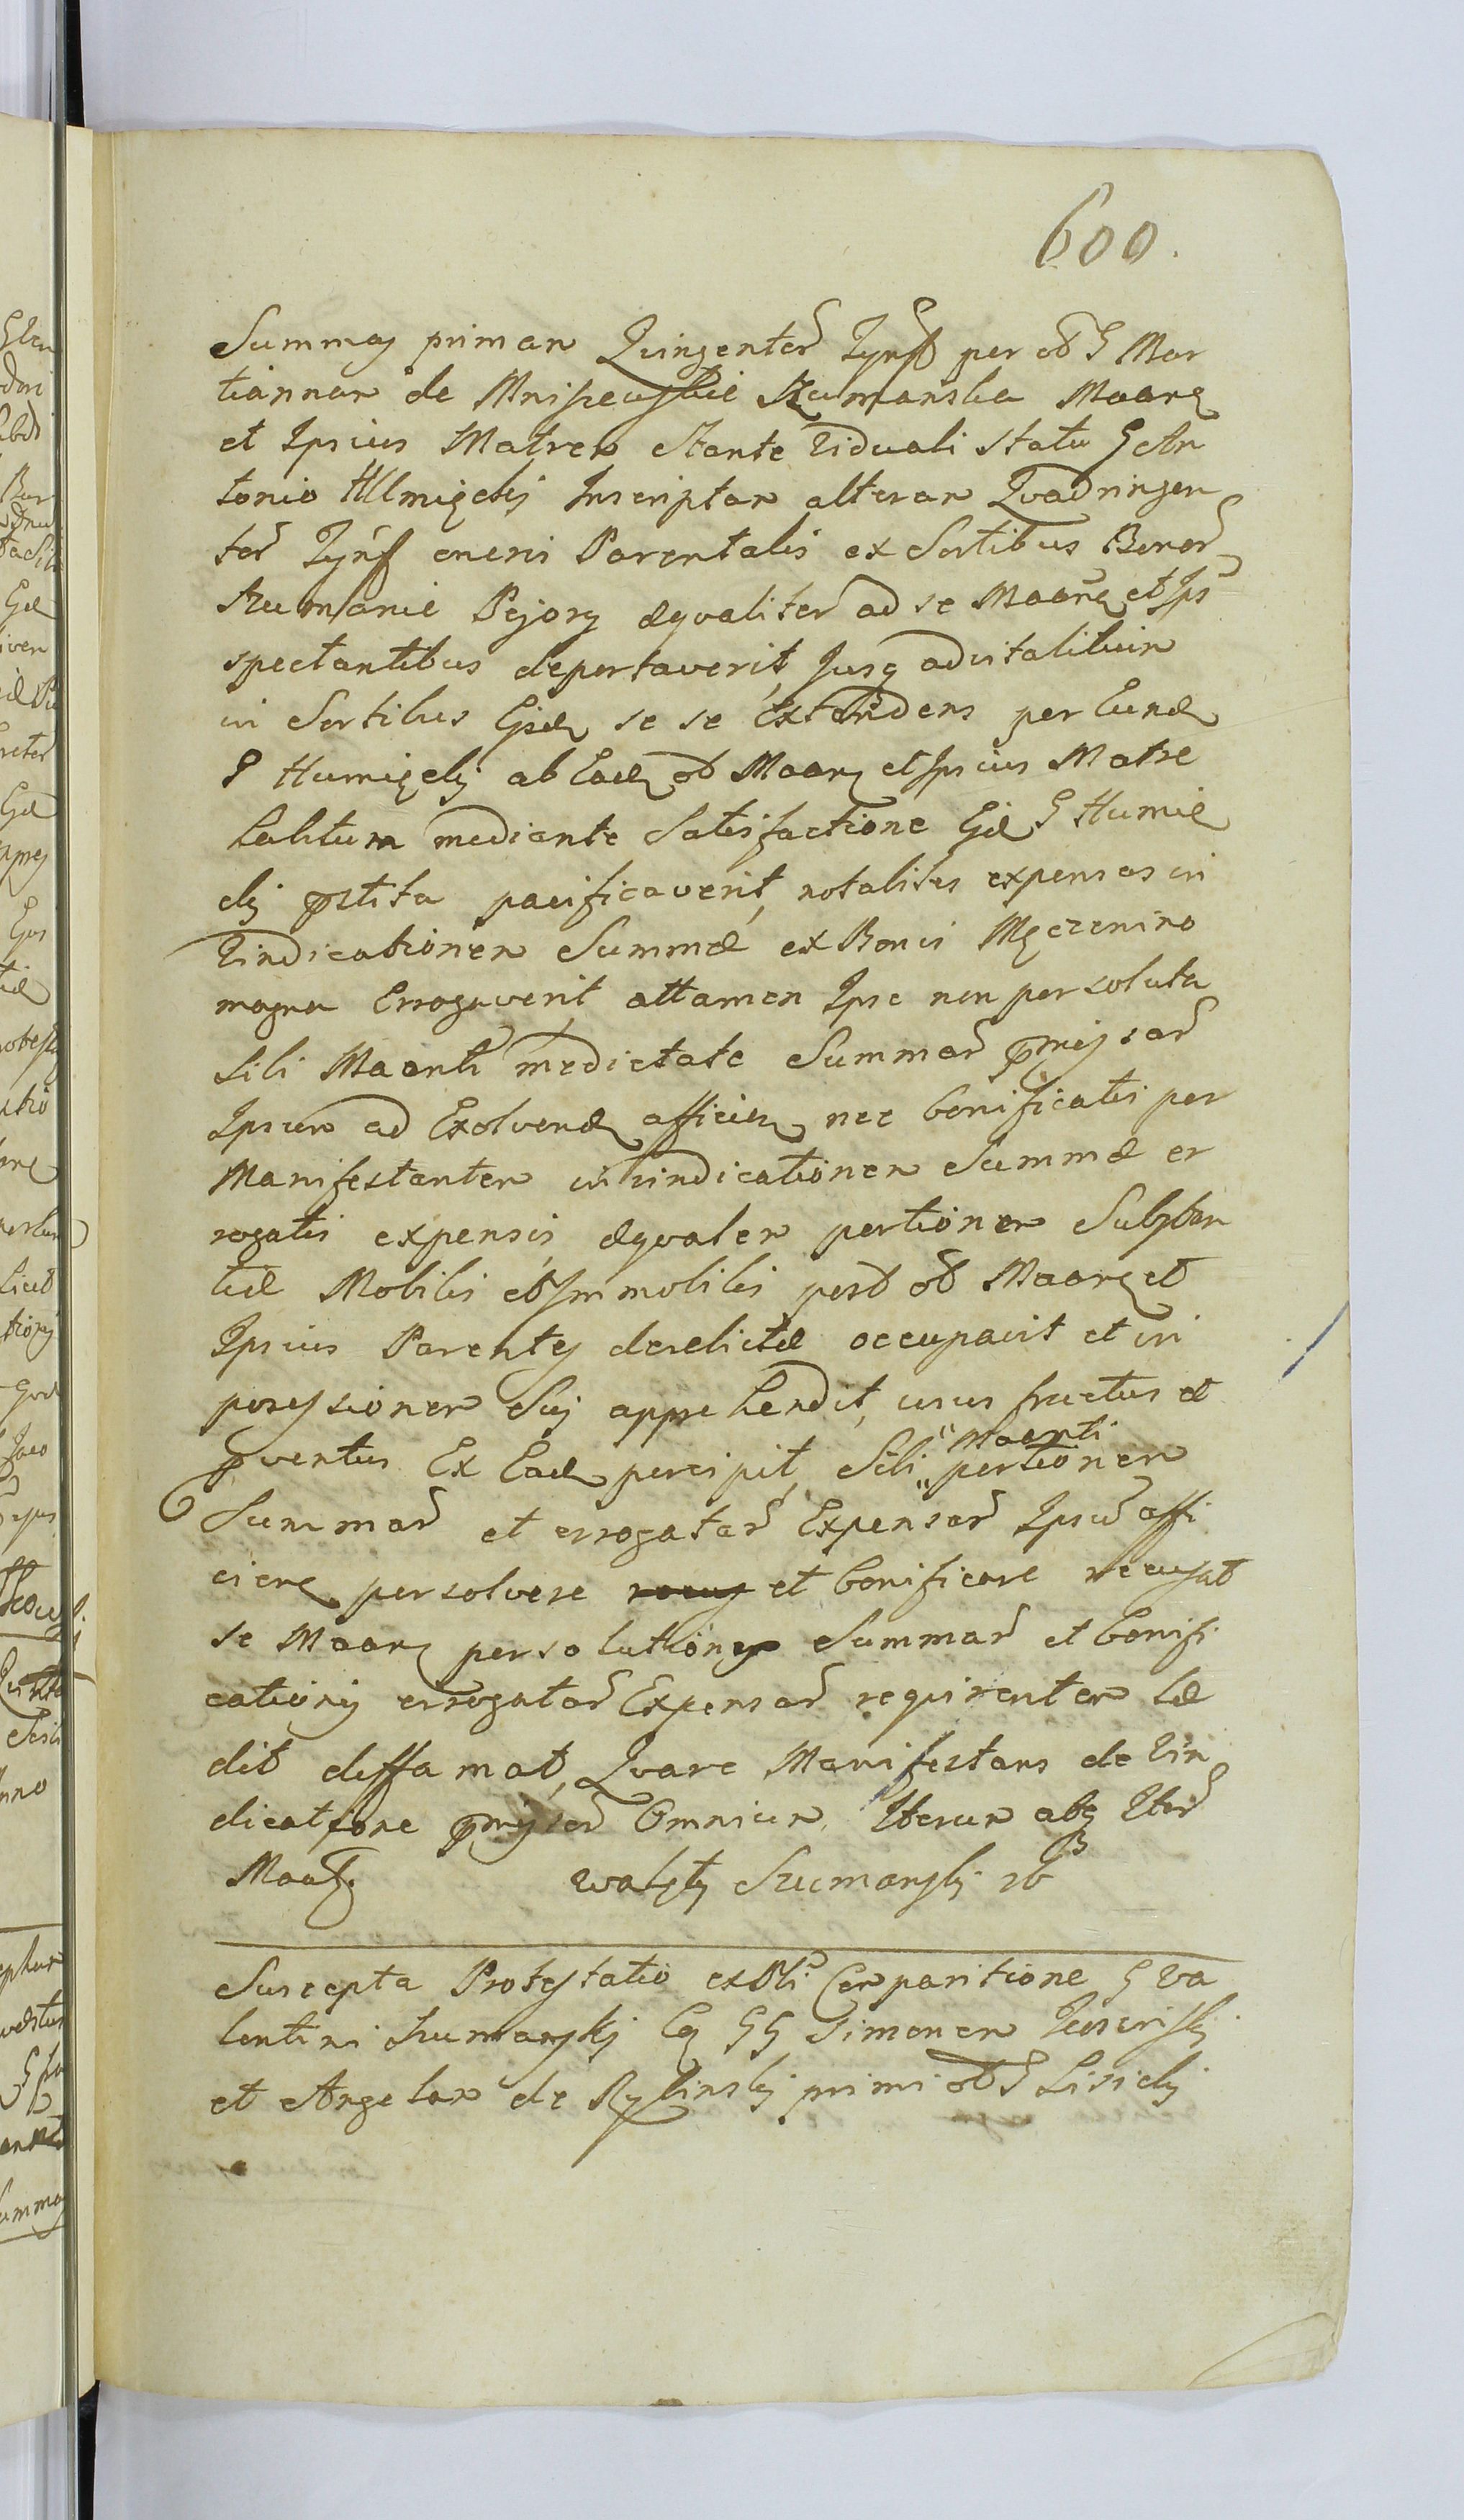 600.
Summas primam Quingentor Tynf per od G Mar
tiannam de Mnisewskie Szumanska Maane
et Ipsius Matrem Stante Viduali Statu G An
tonio Inscriptam alteram Quadringen
tor Tynf oneris Parentalis ex Sortibus Bonor
Szumanie Pejory æqvaliter ad se Maane et Ips
spectantibus deportaverit Jusq advitalitium
in Sortibus Ejsd se se Extendens per Eund
G Humięcky ab Ead od Maane et Ipsius Matre
habitum mediante Satisfactione Ejd G Humię
cky pstita pacificaverit, notabiles expensas in
Vindicationem Summæ ex Bonis
magna Erogaverit attamen Ipse non persoluta
sibi Maanti medietate Summar pmissar
Ipsum ad Exolvend afficien nec bonificatis per
Manifestantem in vindicationem Summæ er
rogatis expensis, æqvalem portionem Substan
tiæ Mobilis et Immobilis post od Maane et
Ipsius Parentes derelictæ occupavit et in
possessionem Sui apprehendit, usus fructus et
pventus Ex Ead percipit, Sibi "Maanti" portionem
Summar et errogatar Expensar Ipsu affi
cien persolvere et bonificare recusat
se Maane persolutionis Summar et bonifi
cationis errogatar Expensar reqvirentem læ
dit diffamat, Qvare Manifestans de Vin
dicatione pmissor Omnium Iterum
Maat. Walęty Szumansky
Suscepta Protestatio ex Psli Comparitione G Va
lentini Szumanskj Co GG Simonem
et Angelam de Rylinsky primi od G Lisicky